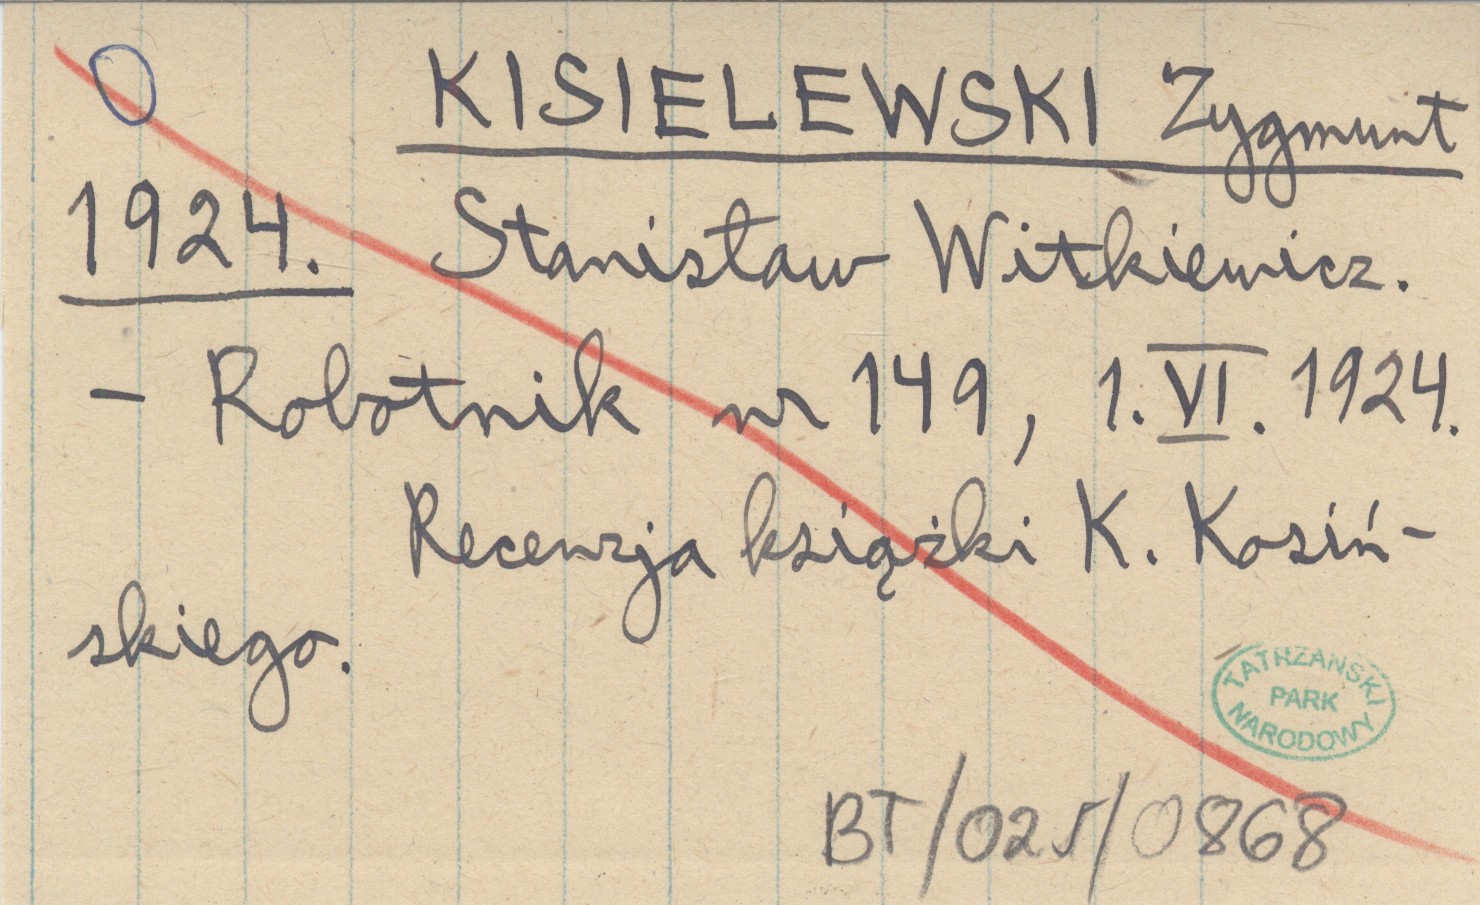 KISIELEWSKI Zygmunt
1924. Stanisław Witkiewicz.
- Robotnik nr 149, 1. VI. 1924.
Recenzja książki K. Kosiń-
skiego.
TATRZAŃSKI
PARK
NARODOWY
BT/025/0868